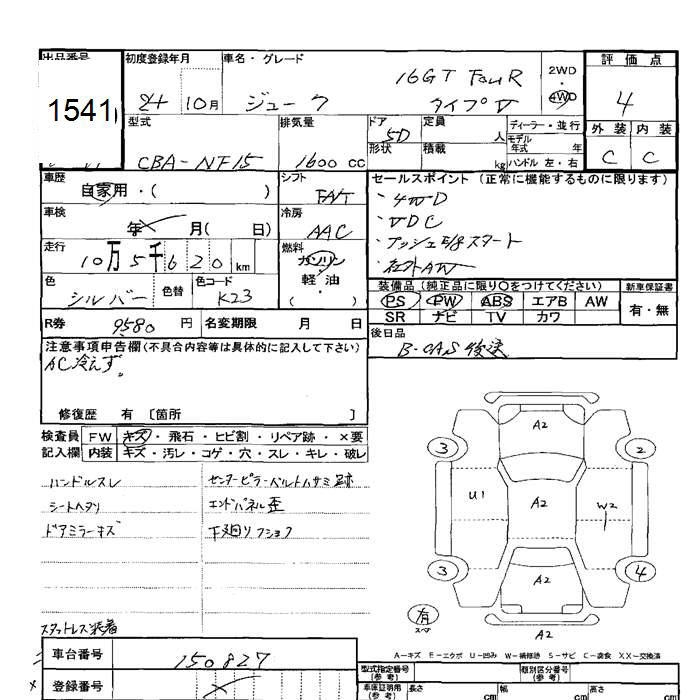 出品番号 初度登録年月 車名・グレード 評価点
1541 24 10月 ジューク 16GT FouR タイプV 2WD・4WD 4
型式 排気量 ドア 5D 定員 人 ディーラー・並行 外装 内装
形状 積載 kg モデル年式 年 ハンドル 左・右 C C
CBA-NF15 1600 cc
車歴 自家用・( ) シフト FAT セールスポイント (正常に機能するものに限ります)
車検 年 月( 日) 冷房 AAC ・4WD
・VDC
走行 10万5千620 km 燃料 ガソリン・軽・油 ( ) ・プッシュE/gスタート
・社外AW
色 シルバー 色替 色コード K23
装備品(純正品に限り○をつけてください) 新車保証書
PS PW ABS エアB AW 有・無
SR ナビ TV カワ
R券 9580 円 名変期限 月 日 後日品
B-CAS後送
注意事項申告欄(不具合内容等は具体的に記入して下さい)
AC冷えず。
修復歴 有 〔箇所 〕
検査員 FW キズ・飛石・ヒビ割・リペア跡・×要
記入欄 内装 キズ・汚レ・コゲ・穴・スレ・キレ・破レ
ハンドルスレ センターピラーベルトハサミ跡
シートヘタリ エンドパネル歪
ドアミラーキズ 下廻りフショク
A2
3 2
U1 A2 W2
3 4
A2
有
スペア
A2
スタットレス装着
A-キズ E-エクボ U-凹み W-補修跡 S-サビ C-腐食 XX-交換済
車台番号 150827 型式指定番号 (参考) 類別区分番号 (参考)
登録番号 車庫証明用 (参考) 長さ cm 幅 cm 高さ cm